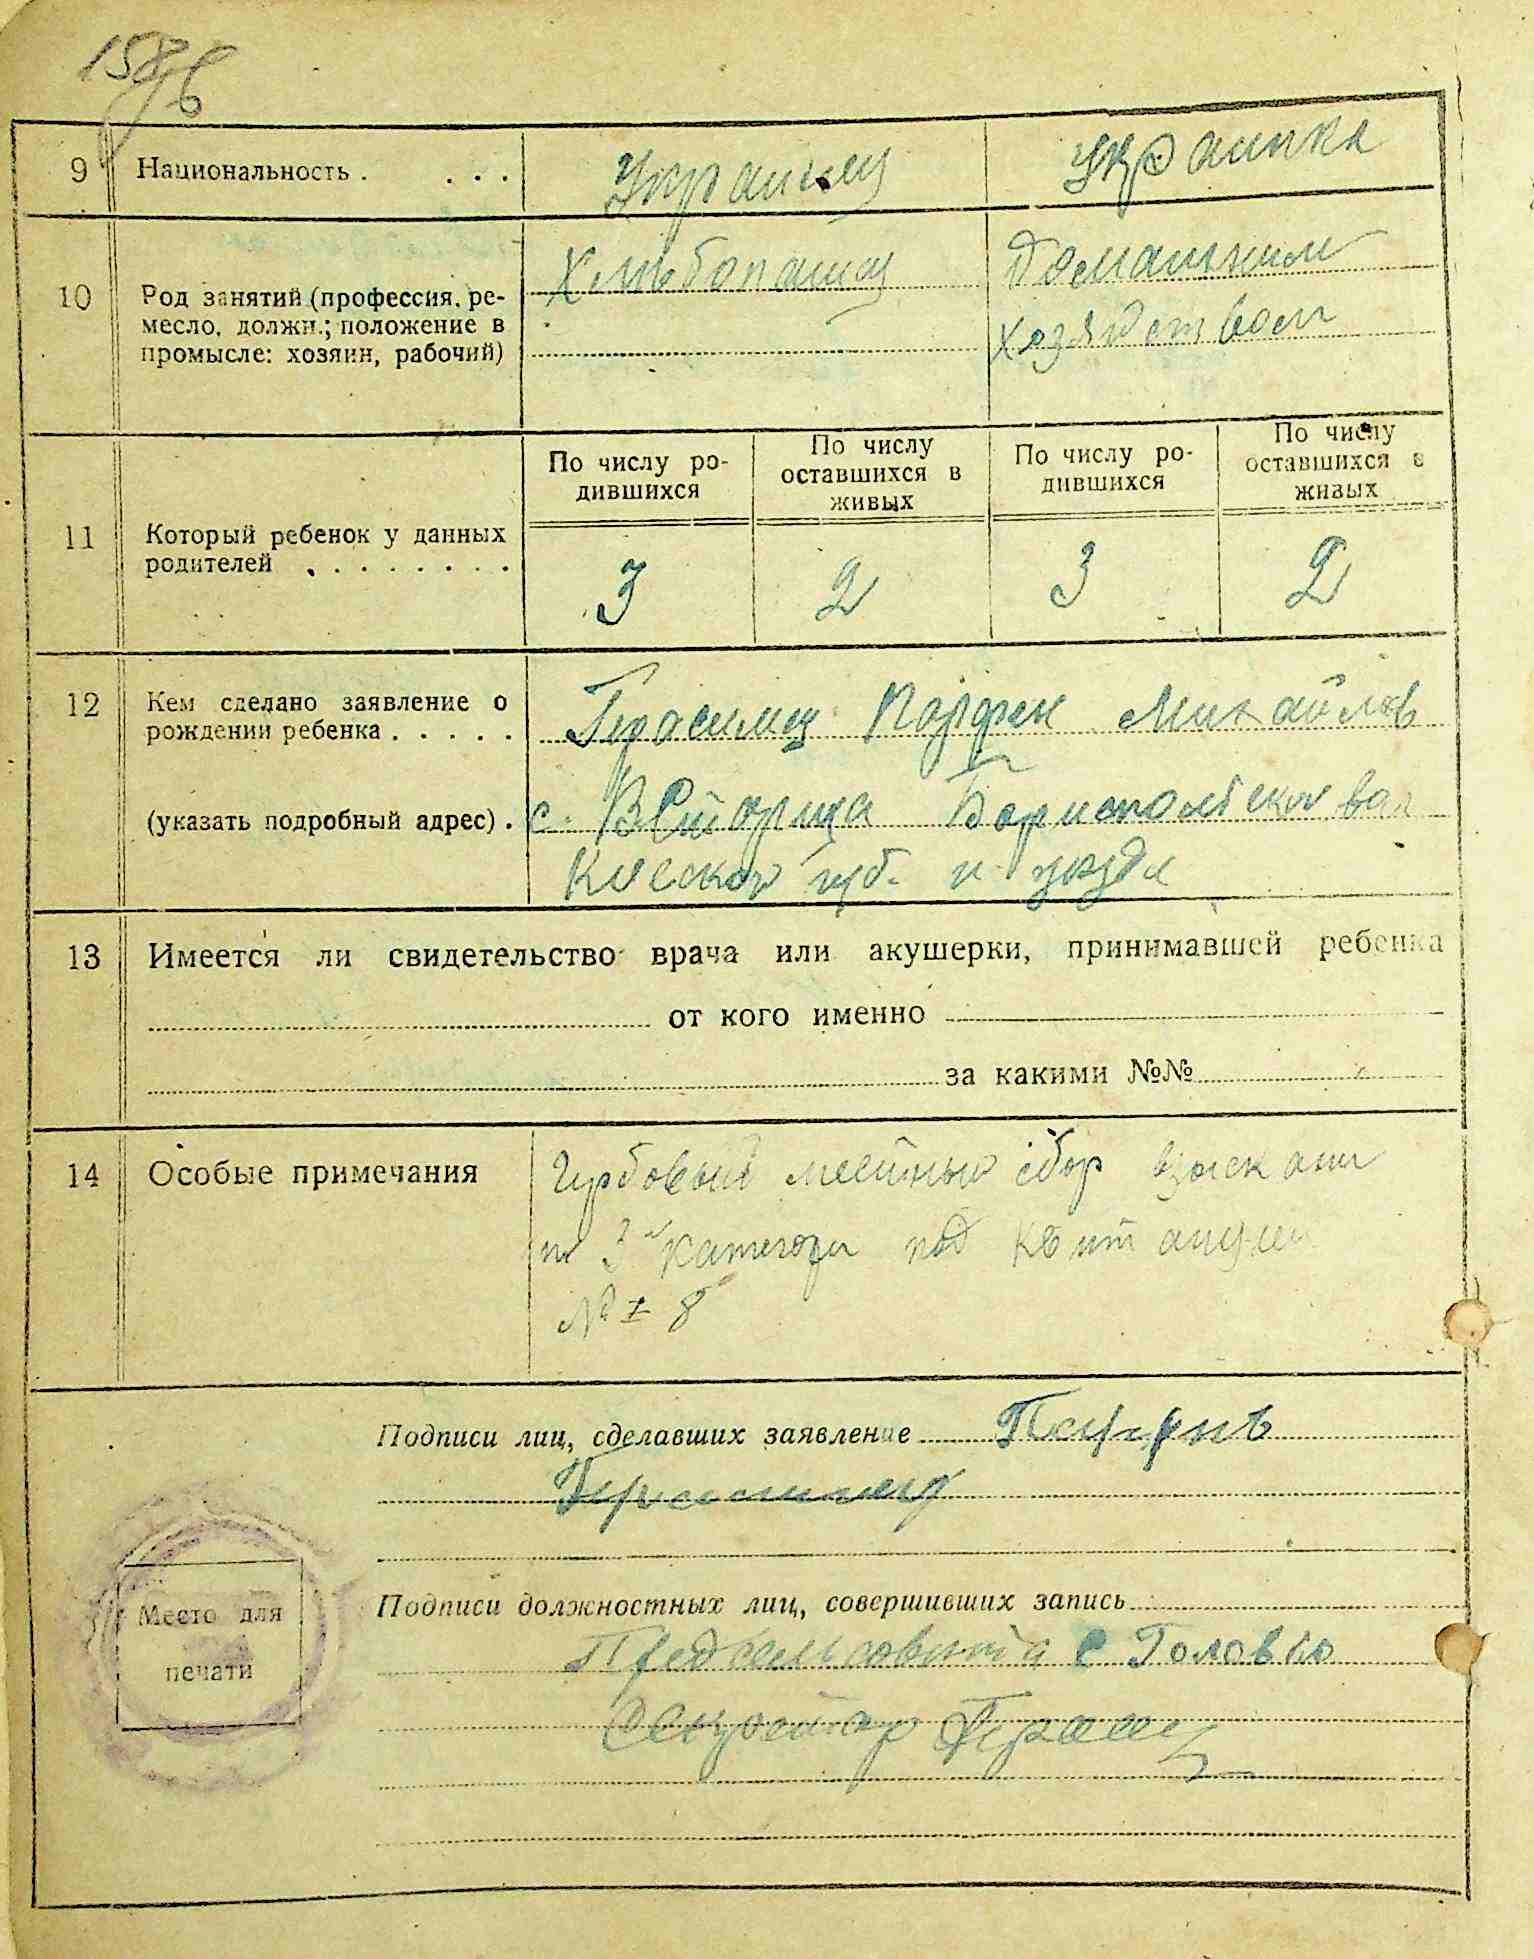 158
9 Национальность . . . . Украинец Украинка
10 Род занятий (профессия, ре-
месло, должн.; положение в
промысле: хозяин, рабочий)
Хлѣбопашец
Домашним
хозяйством
11 Который ребенок у данных
родителей . . . . . . . .
По числу ро-
дившихся
По числу
оставшихся в
живых
По числу ро-
дившихся
По числу
оставшихся в
живых
3 2 3 2
12 Кем сделано заявление о
рождении ребенка . . . . .
Герасимец Парфен Михайлов
(указать подробный адрес) . с. Бориспольской вол
Киеской губ. и уезда
13 Имеется ли свидетельство врача или акушерки, принимавшей ребенка
от кого именно
за какими №№
14 Особые примечания
Гербовый местный сбор взыскан
по 3й категори под квитанцией
№
Подписи лиц, сделавших заявление Парфнъ
Герасимец
Подписи должностных лиц, совершивших запись
Предсельсовета С Головко
Секретар
Место для
печати